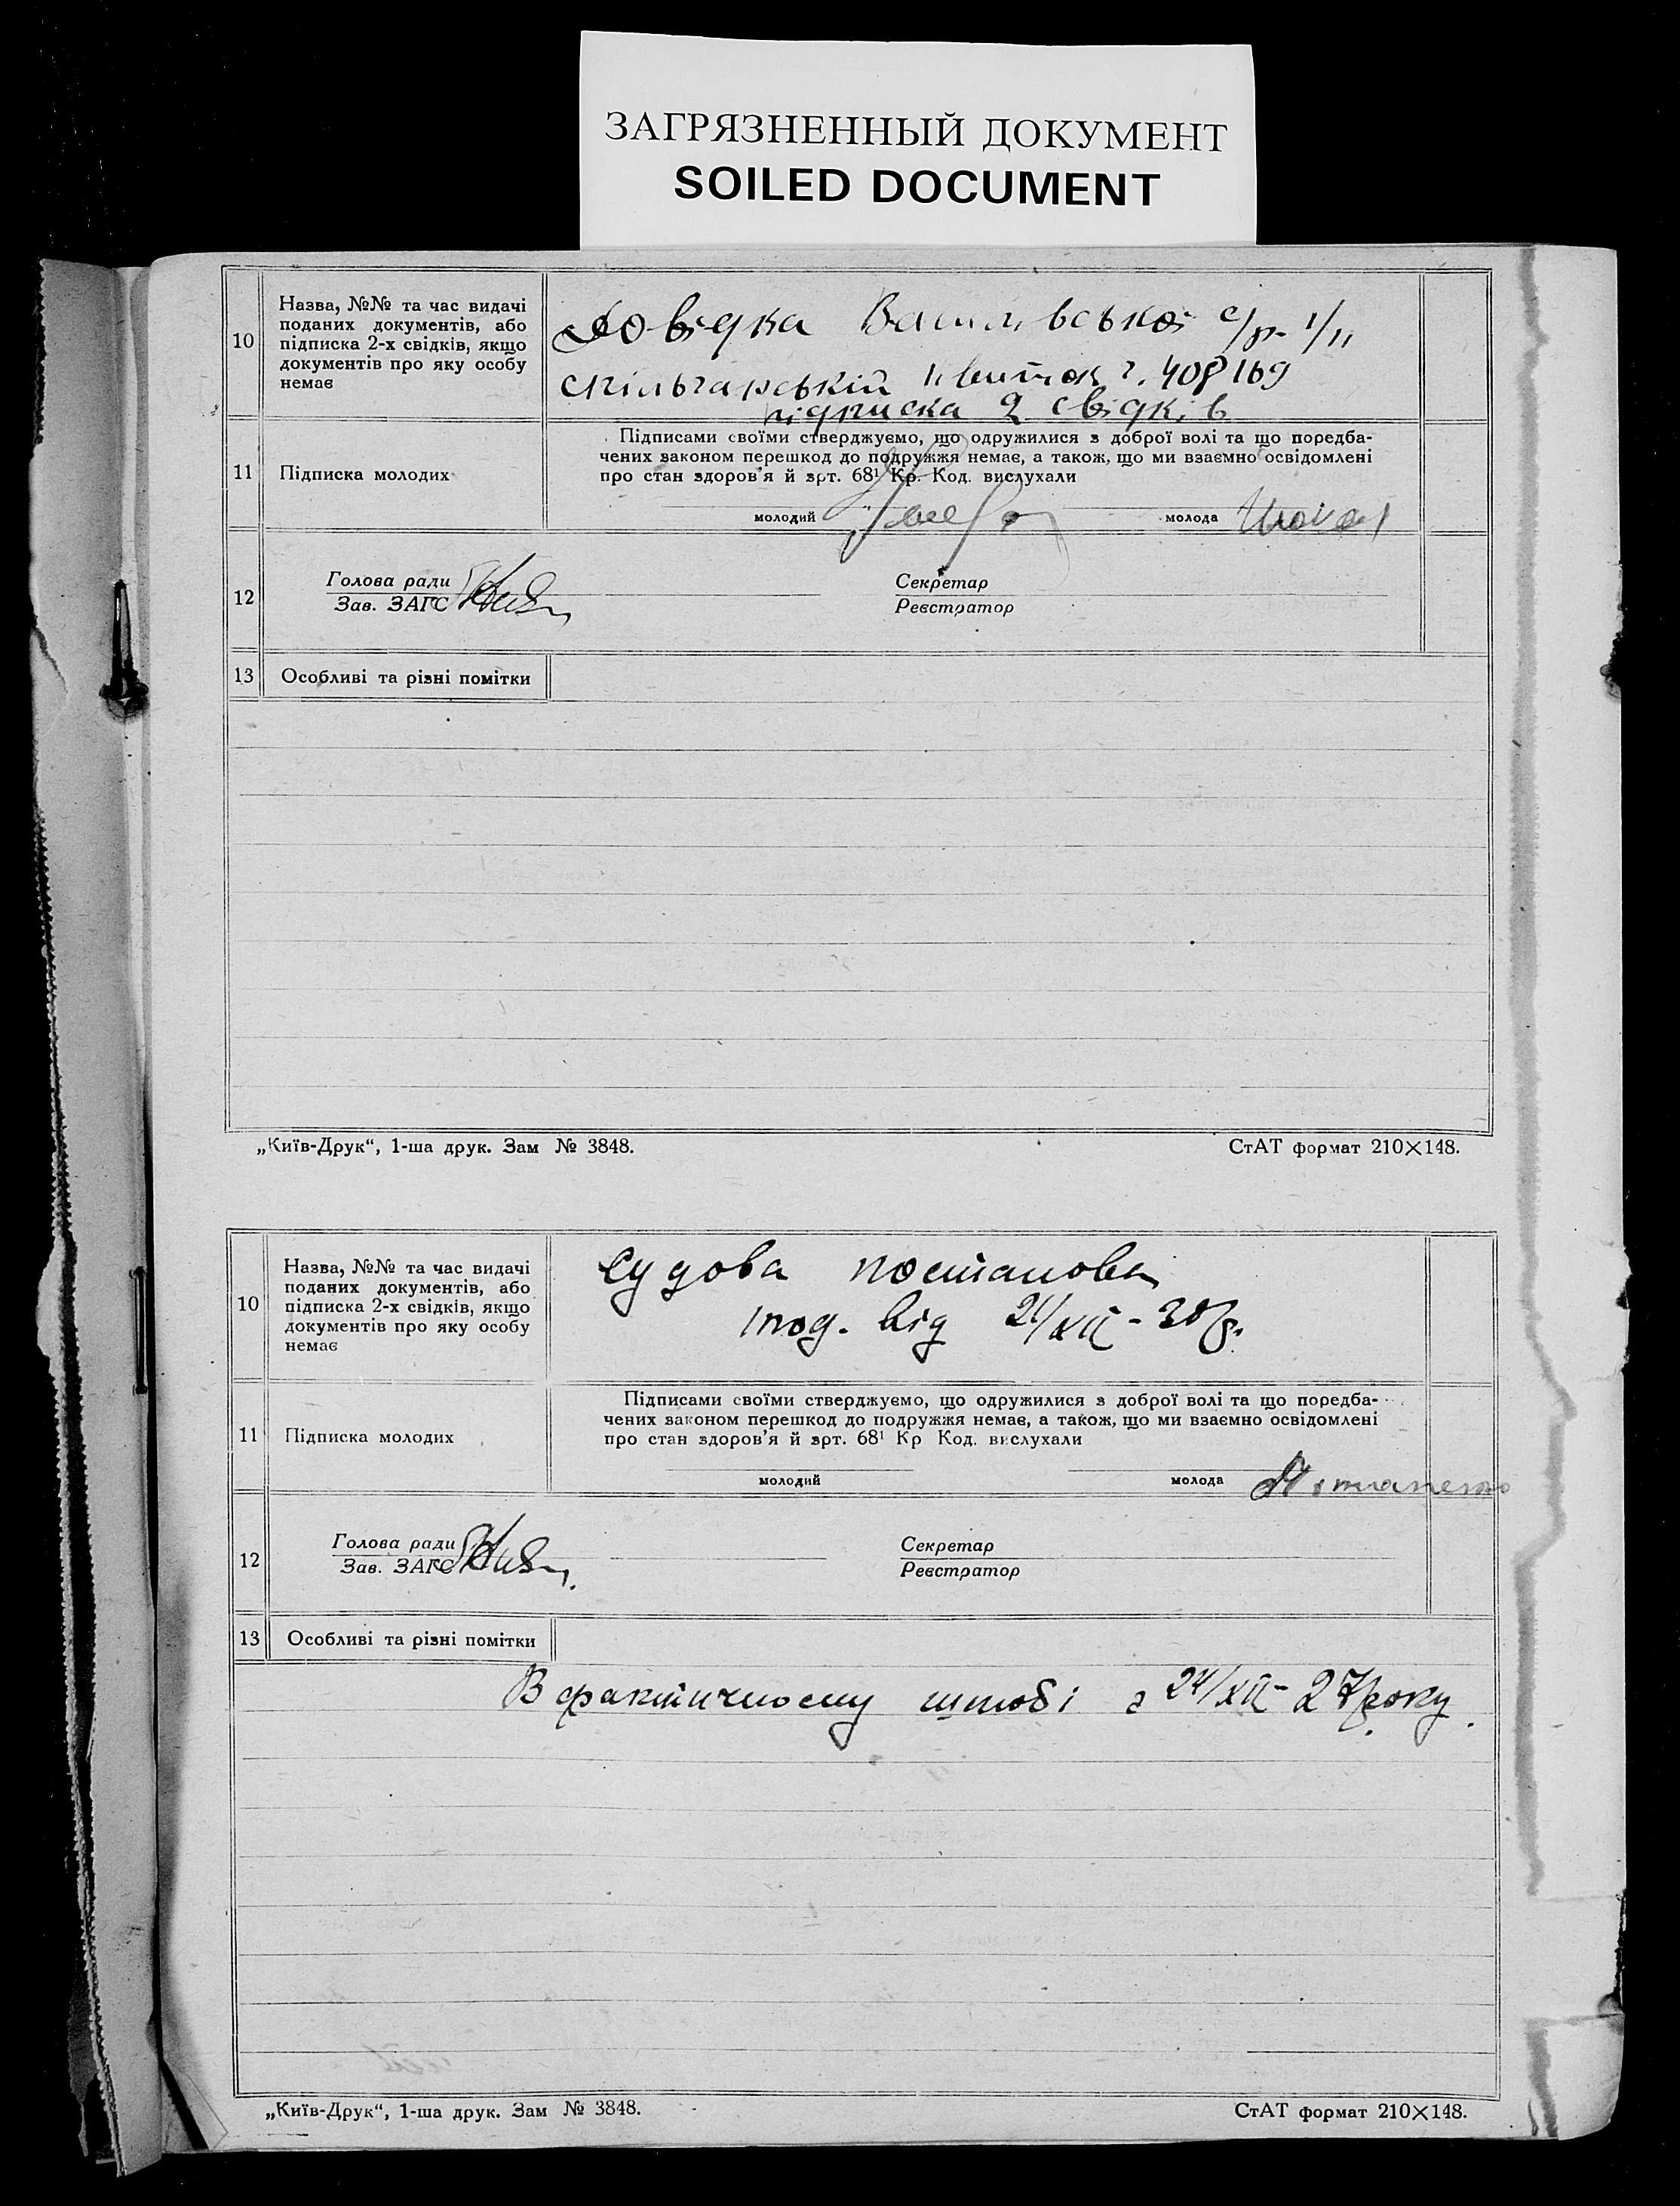 ЗАГРЯЗНЕННЫЙ ДОКУМЕНТ
SOILED DOCUMENT
10
Назва, №№ та час видачі
поданих документів, або
підписка 2-х свідків, якщо
документів про яку особу
немає
Довідка Василівської с/р. 1/11
спільчарський квиток ч. 408169
підписка 2 свідків
11
Підписка молодих
Підписами своїми стверджуємо, що одружилися з доброї волі та що поредба-
чених законом перешкод до подружжя немає, а також, що ми взаємно освідомлені
про стан здоров'я й зрт. 68¹ Кр. Код. вислухали
молодий
молода
12
Голова ради
Зав. ЗАГС
Секретар
Реєстратор
13
Особливі та різні помітки
„Київ-Друк“, 1-ша друк. Зам № 3848.
СтАТ формат 210×148.
10
Назва, №№ та час видачі
поданих документів, або
підписка 2-х свідків, якщо
документів про яку особу
немає
Судова постанова
від 21/XII - 30 р.
11
Підписка молодих
Підписами своїми стверджуємо, що одружилися з доброї волі та що поредба-
чених законом перешкод до подружжя немає, а також, що ми взаємно освідомлені
про стан здоров'я й зрт. 68¹ Кр Код. вислухали
молодий
молода
12
Голова ради
Зав. ЗАГС
Секретар
Реєстратор
13
Особливі та різні помітки
В фактичному шлюбі з 24/XII - 27 року.
„Київ-Друк“, 1-ша друк. Зам № 3848.
СтАТ формат 210×148.